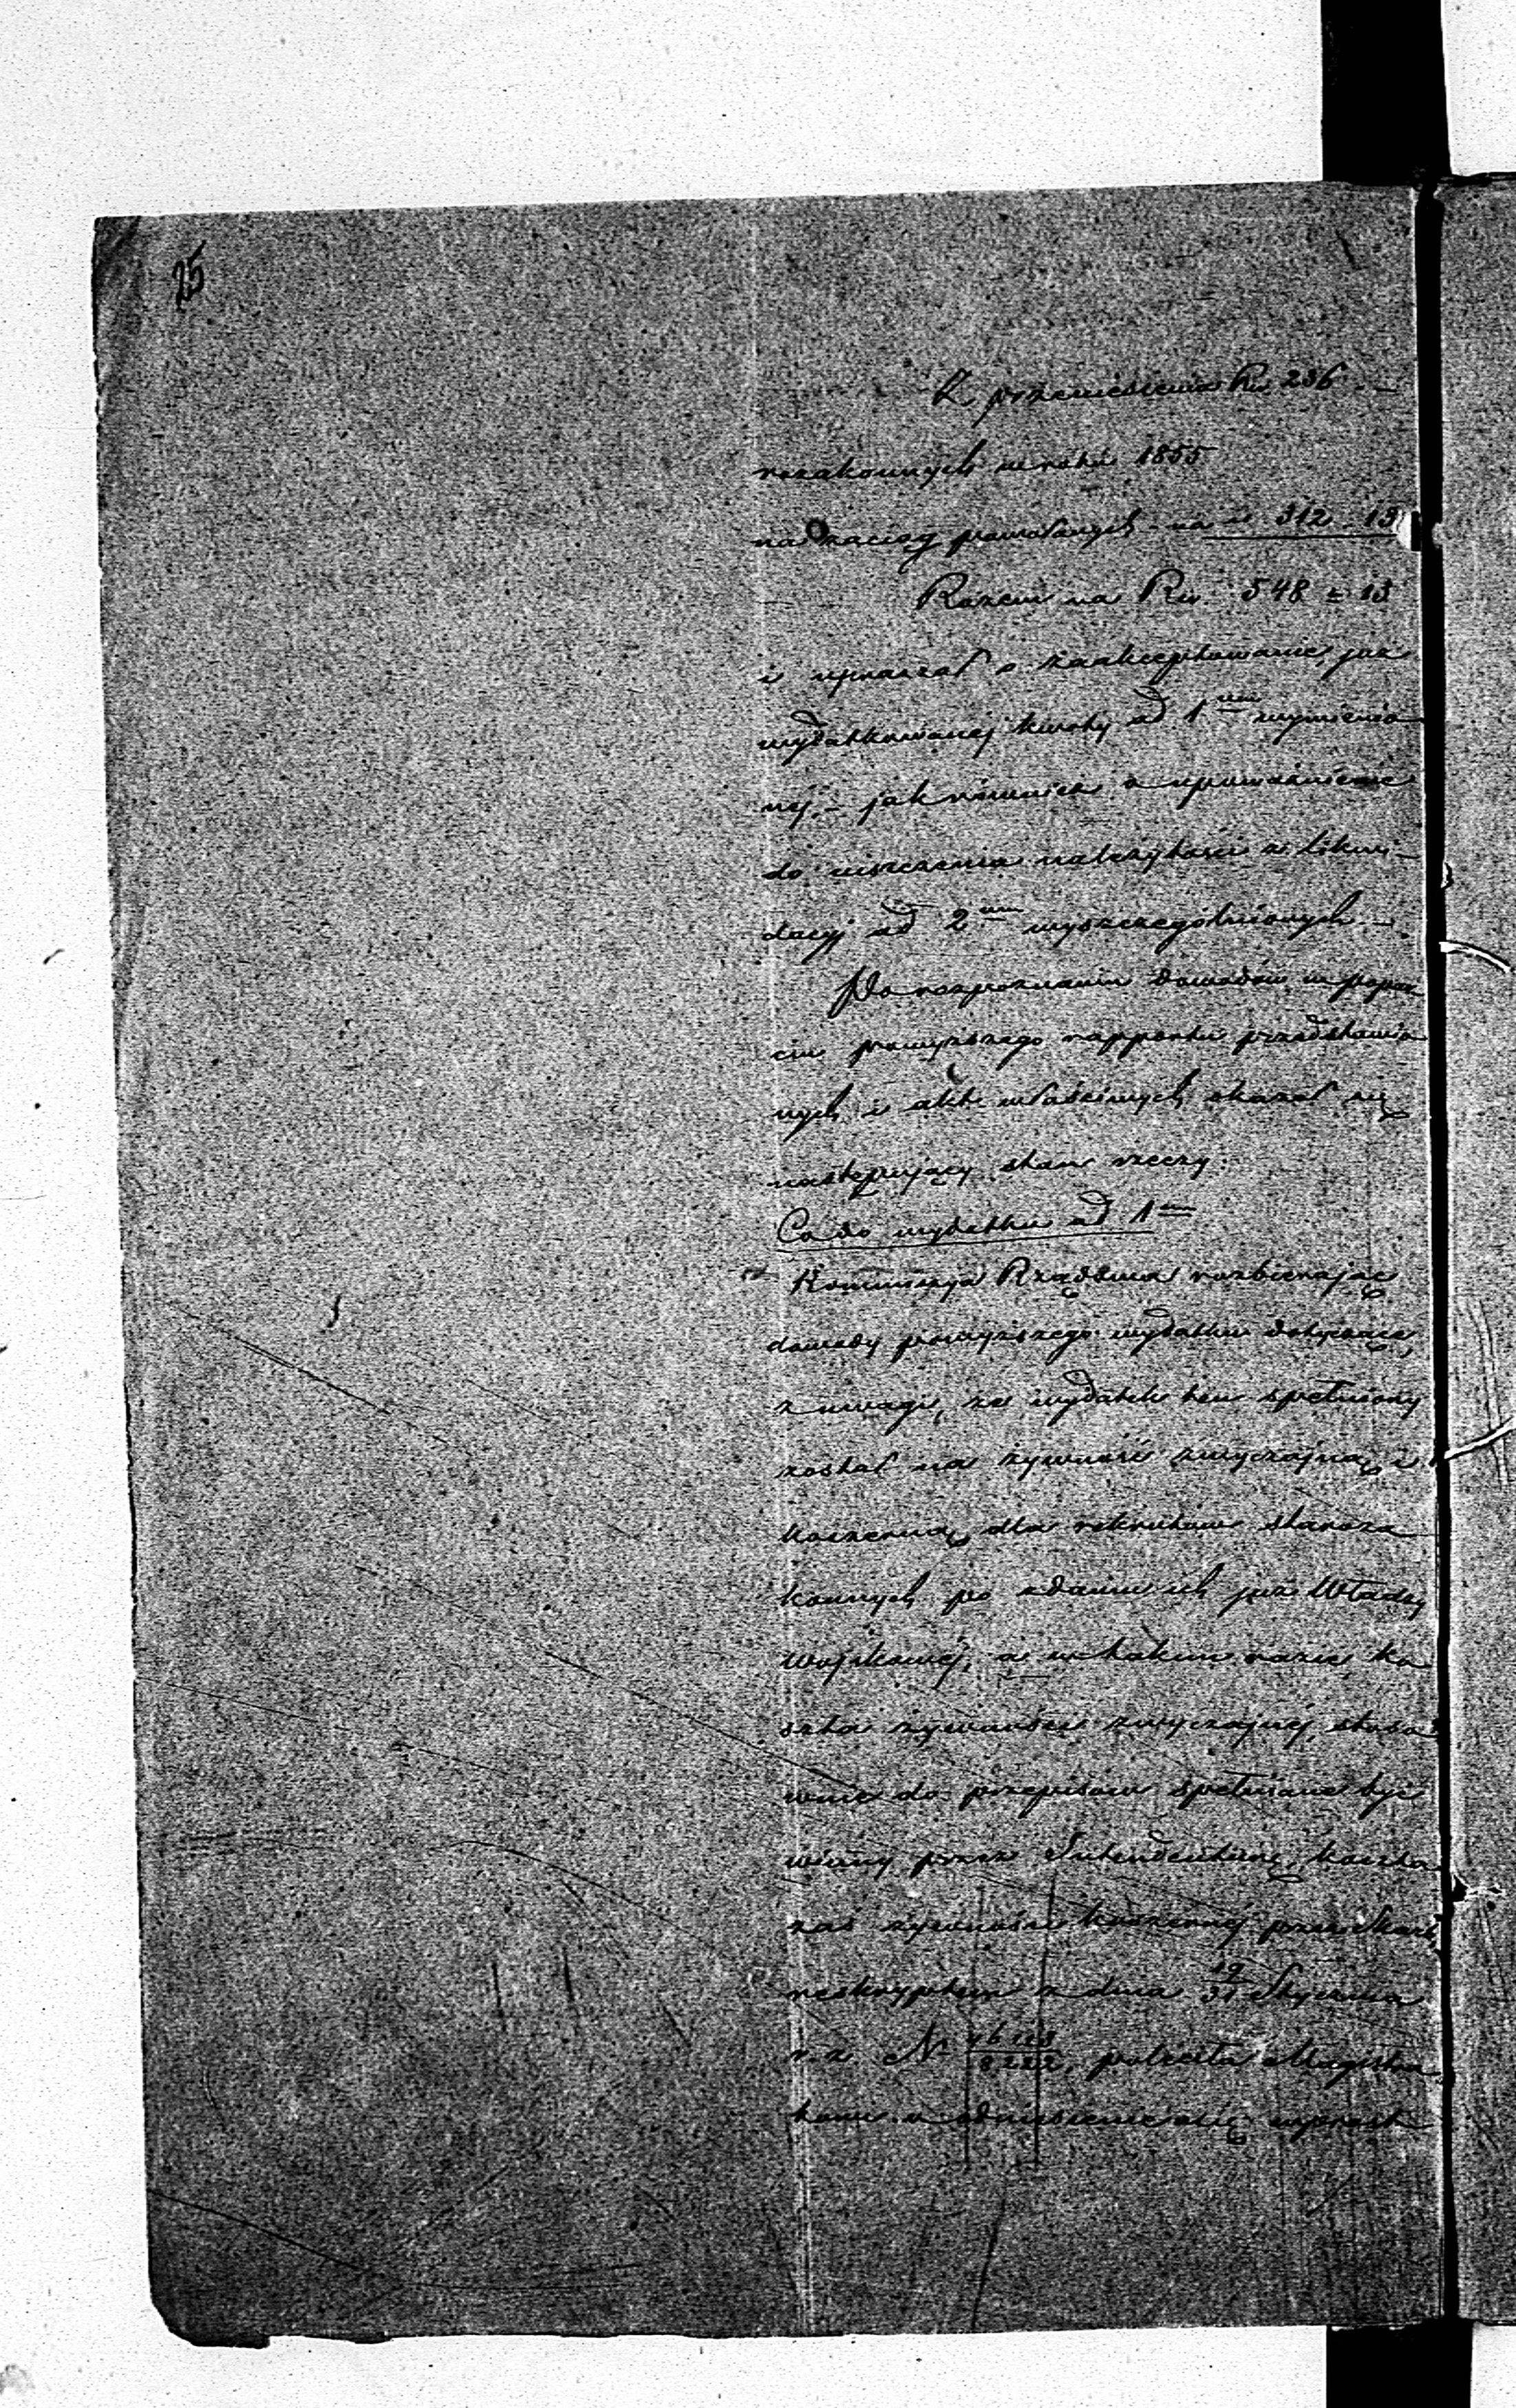 25
Z przeniesienia Rs. 236 -
rozakonnych w roku 1855
na zaciąg powołanych - na " 312 . 13
Razem na Rs. 548 = 13
i upraszał o zaakceptowanie już
wydatkowanej kwoty ad 1um wymienio
nej, - jak również o upoważnienie
do uiszczenia należytości z likwi-
dacyj ad 2um wyszczególnionych. -
Po rozpoznaniu dowodów w popar
ciu powyższego rapportu przedstawio
nych i akt właściwych okazał się
następujący stan rzeczy:
Co do wydatku ad 1um
Kommissya Rządowa rozbierając
dowody powyższego wydatku dotyczące,
z uwagi, że wydatek ten spełniony
został na żywność zwyczajną i
koszerną dla rekrutów staroza
konnych po zdaniu ich już Władzy
Wojskowej, a w takim razie ko
szta żywności zwyczajnej, stoso
wnie do przepisów spełniane być
winny przez Intendenturę, koszta
zaś żywności koszernej przez Skarb,
reskryptem z dnia 19/31 Stycznia
r. z. N 8222, poleciła Magistra
towi odniesienie się wprost